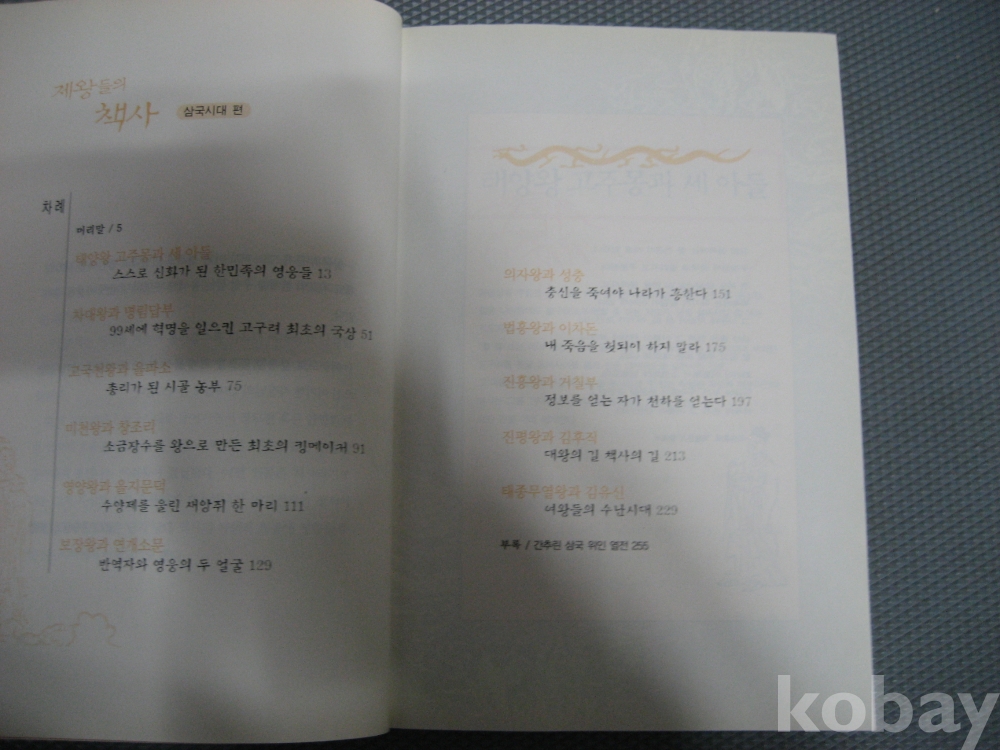 제왕들의
책사 삼국시대 편
차례
머리말 / 5
태양왕 고주몽과 세 아들
스스로 신화가 된 한민족의 영웅들 13
차대왕과 명림답부
99세에 혁명을 일으킨 고구려 최초의 국상 51
고국천왕과 을파소
총리가 된 시골 농부 75
미천왕과 창조리
소금장수를 왕으로 만든 최초의 킹메이커 91
영양왕과 을지문덕
수양제를 울린 새앙쥐 한 마리 111
보장왕과 연개소문
반역자와 영웅의 두 얼굴 129
의자왕과 성충
충신을 죽여야 나라가 흥한다 151
법흥왕과 이차돈
내 죽음을 헛되이 하지 말라 175
진흥왕과 거칠부
정보를 얻는 자가 천하를 얻는다 197
진평왕과 김후직
대왕의 길 책사의 길 213
태종무열왕과 김유신
여왕들의 수난시대 229
부록 / 간추린 삼국 위인 열전 255
kobay